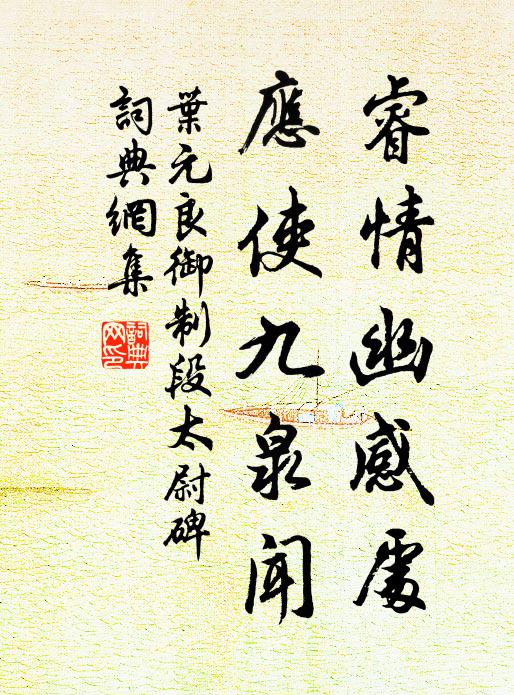 睿情幽感處
應使九泉聞
葉元良御制段太尉碑
詞典網集
詞典
网印